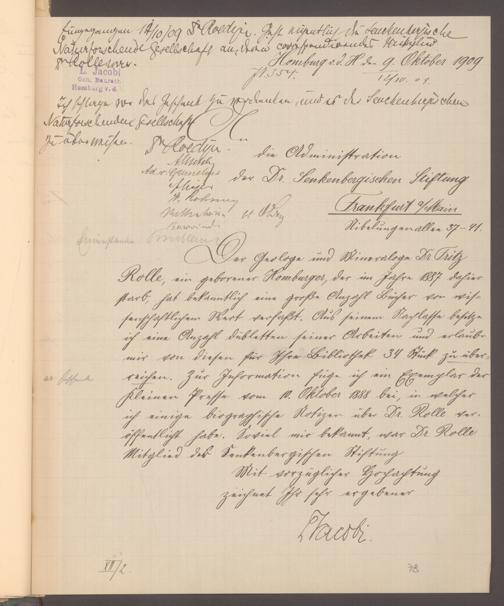 Eingegangen 12/10/09 Dr Roediger.
Naturforschende Gesellschaft an, deren correspondirendes Mitglied
Dr Rolle war.
L. Jacobi
Geh. Baurath
Homburg v. d.
Homburg v. d. H. den 9. Oktober 1909
Ich schlage vor das Geschenk zu verdanken und es der Senckenbergischen
Naturforschenden Gesellschaft
zu überweisen.
Dr Roediger.
die Administration
der Dr. Senkenbergischen Stiftung
Frankfurt a/Main
Nibelungenallee 37-41.
Der Geologe und Mineraloge Dr Fritz
Rolle, ein geborener Homburger, der im Jahre 1887 dahier
starb, hat bekanntlich eine große Anzahl Bücher von wis-
senschaftlichem Wert verfaßt. Aus seinem Nachlasse besitze
ich eine Anzahl Dubletten seiner Arbeiten und erlaube
mir von diesen für Ihre Bibliothek 34 Stück zu über-
reichen. Zur Information füge ich ein Exemplar der
Kleinen Presse vom 10. Oktober 1888 bei, in welcher
ich einige biographische Notizen über Dr Rolle ver-
öffentlicht habe. Soviel mir bekannt, war Dr Rolle
Mitglied der Senkenbergischen Stiftung
Mit vorzüglicher Hochachtung
zeichnet Ihr sehr ergebener
L Jacobi.
VII/2
78